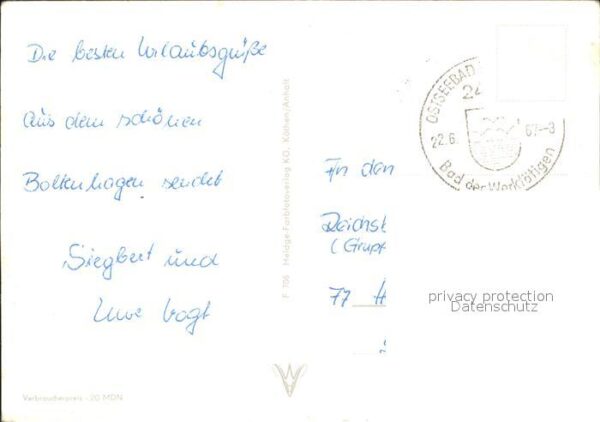 Die besten Urlaubsgrüße
aus dem schönen
Boltenhagen sendet
Siegbert und
Uwe Vogt
Verbraucherpreis -.20 MDN
F 706 Heldge-Farbfotoverlag KG., Köthen/Anhalt
OSTSEEBAD
22.6. 67-8
Bad der Werktätigen
An den
Reichsb
(Grupp
77 H
privacy protection
Datenschutz